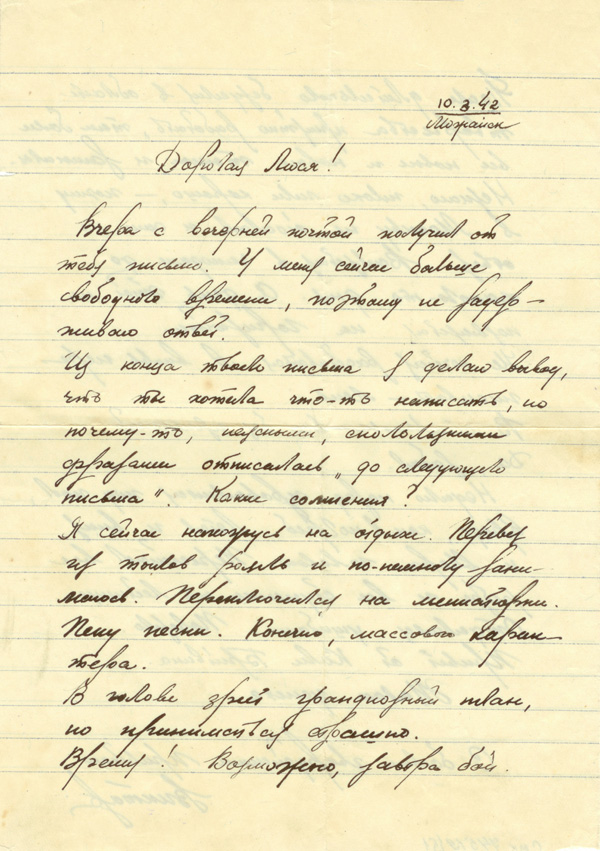 10.3.42
Можайск
Дорогая Люся!
Вчера с вечерней почтой получил от
тебя письмо. У меня сейчас больше
свободного времени, поэтому не задер-
живаю ответ.
Из конца твоего письма я делаю вывод,
что ты хотела что-то написать, но
почему-то, неясными, скользящими
фразами отписалась „до следующего
письма". Какие сомнения?
Я сейчас нахожусь на отдыхе. Перевез
из тылов рояль и по-немногу зани-
маюсь. Переключился на миниатюры.
Пишу песни. Конечно, массового харак-
тера.
В голове зреет грандиозный план,
но приниматься страшно.
Время! Возможно, завтра бой.